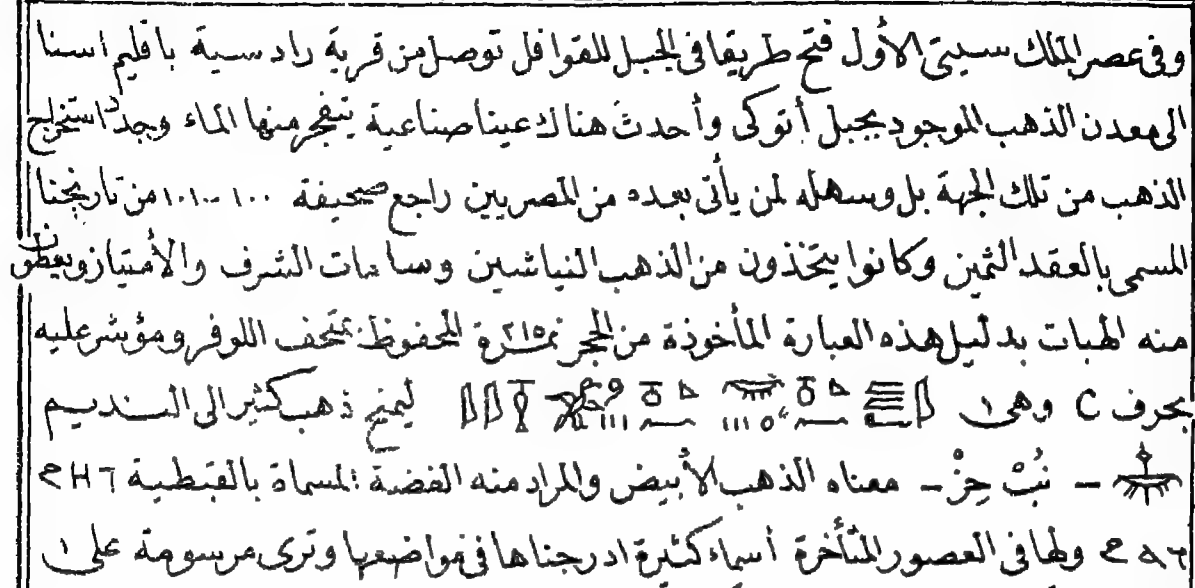 وفى عصر الملك سيتى الأول فتح طريقا فى الجبل للقوافل توصل من قرية رادسية باقليم اسنا
الى معدن الذهب الموجود بجبل أتوكى وأحدث هناك عينا صناعية يتفجر منها الماء وجدد استخراج
الذهب من تلك الجهة بل وسهله لمن يأتى بعده من المصريين راجع صحيفة ١٠٠ - ١٠١ من تاريخنا
المسمى بالعقد الثمين وكانوا يتخذون من الذهب النياشين وسامات الشرف والأمتياز ويعطون
منه الهبات بدليل هذه العبارة المأخوذة من الحجر نمرة ٢١٥ المحفوظ بمتحف اللوفر ومؤشر عليه
بحرف C وهى ليمنح ذهب كثير الى النديم
— نُبْ حِزْ — معناه الذهب الأبيض والمراد منه الفضة المسماة بالقبطية
ولها فى العصور المتأخرة أسماء كثيرة ادرجناها فى مواضعها وترى مرسومة على